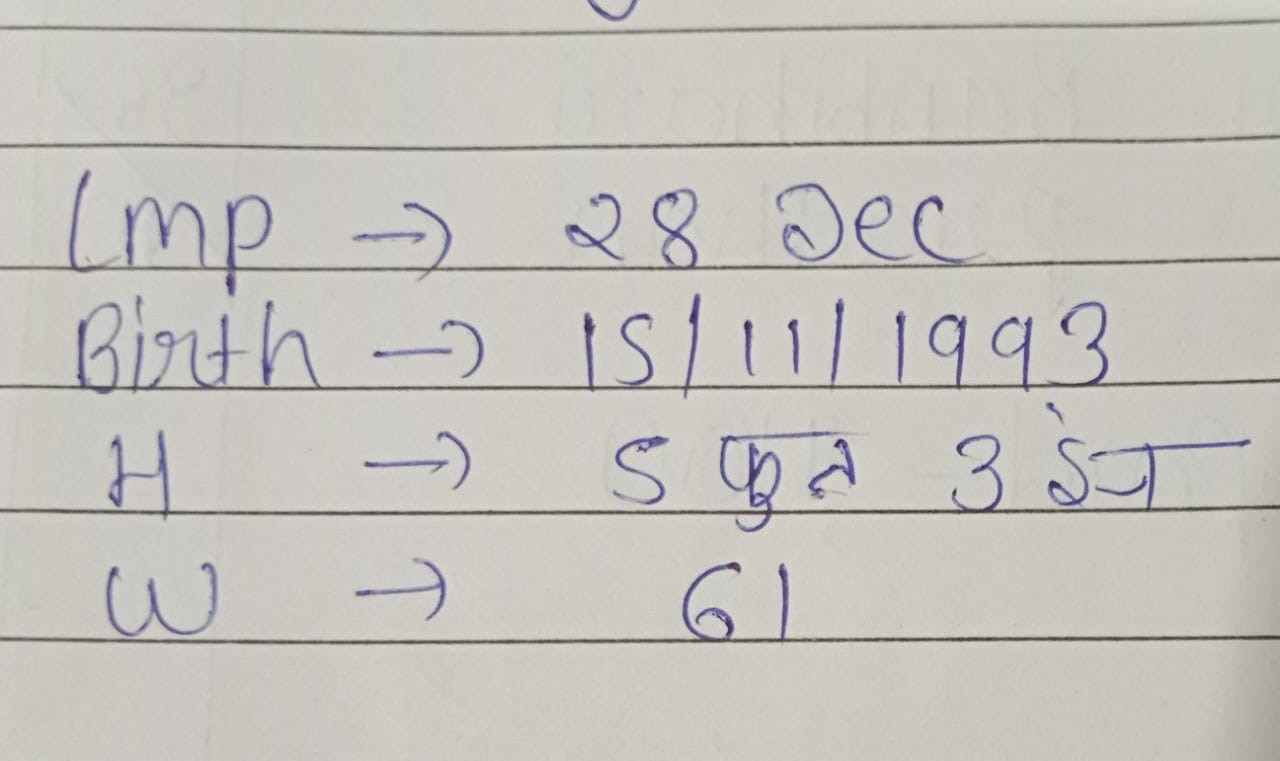 Lmp → 28 Dec
Birth → 15/11/1993
H → 5 फुत 3 इंन
W → 61